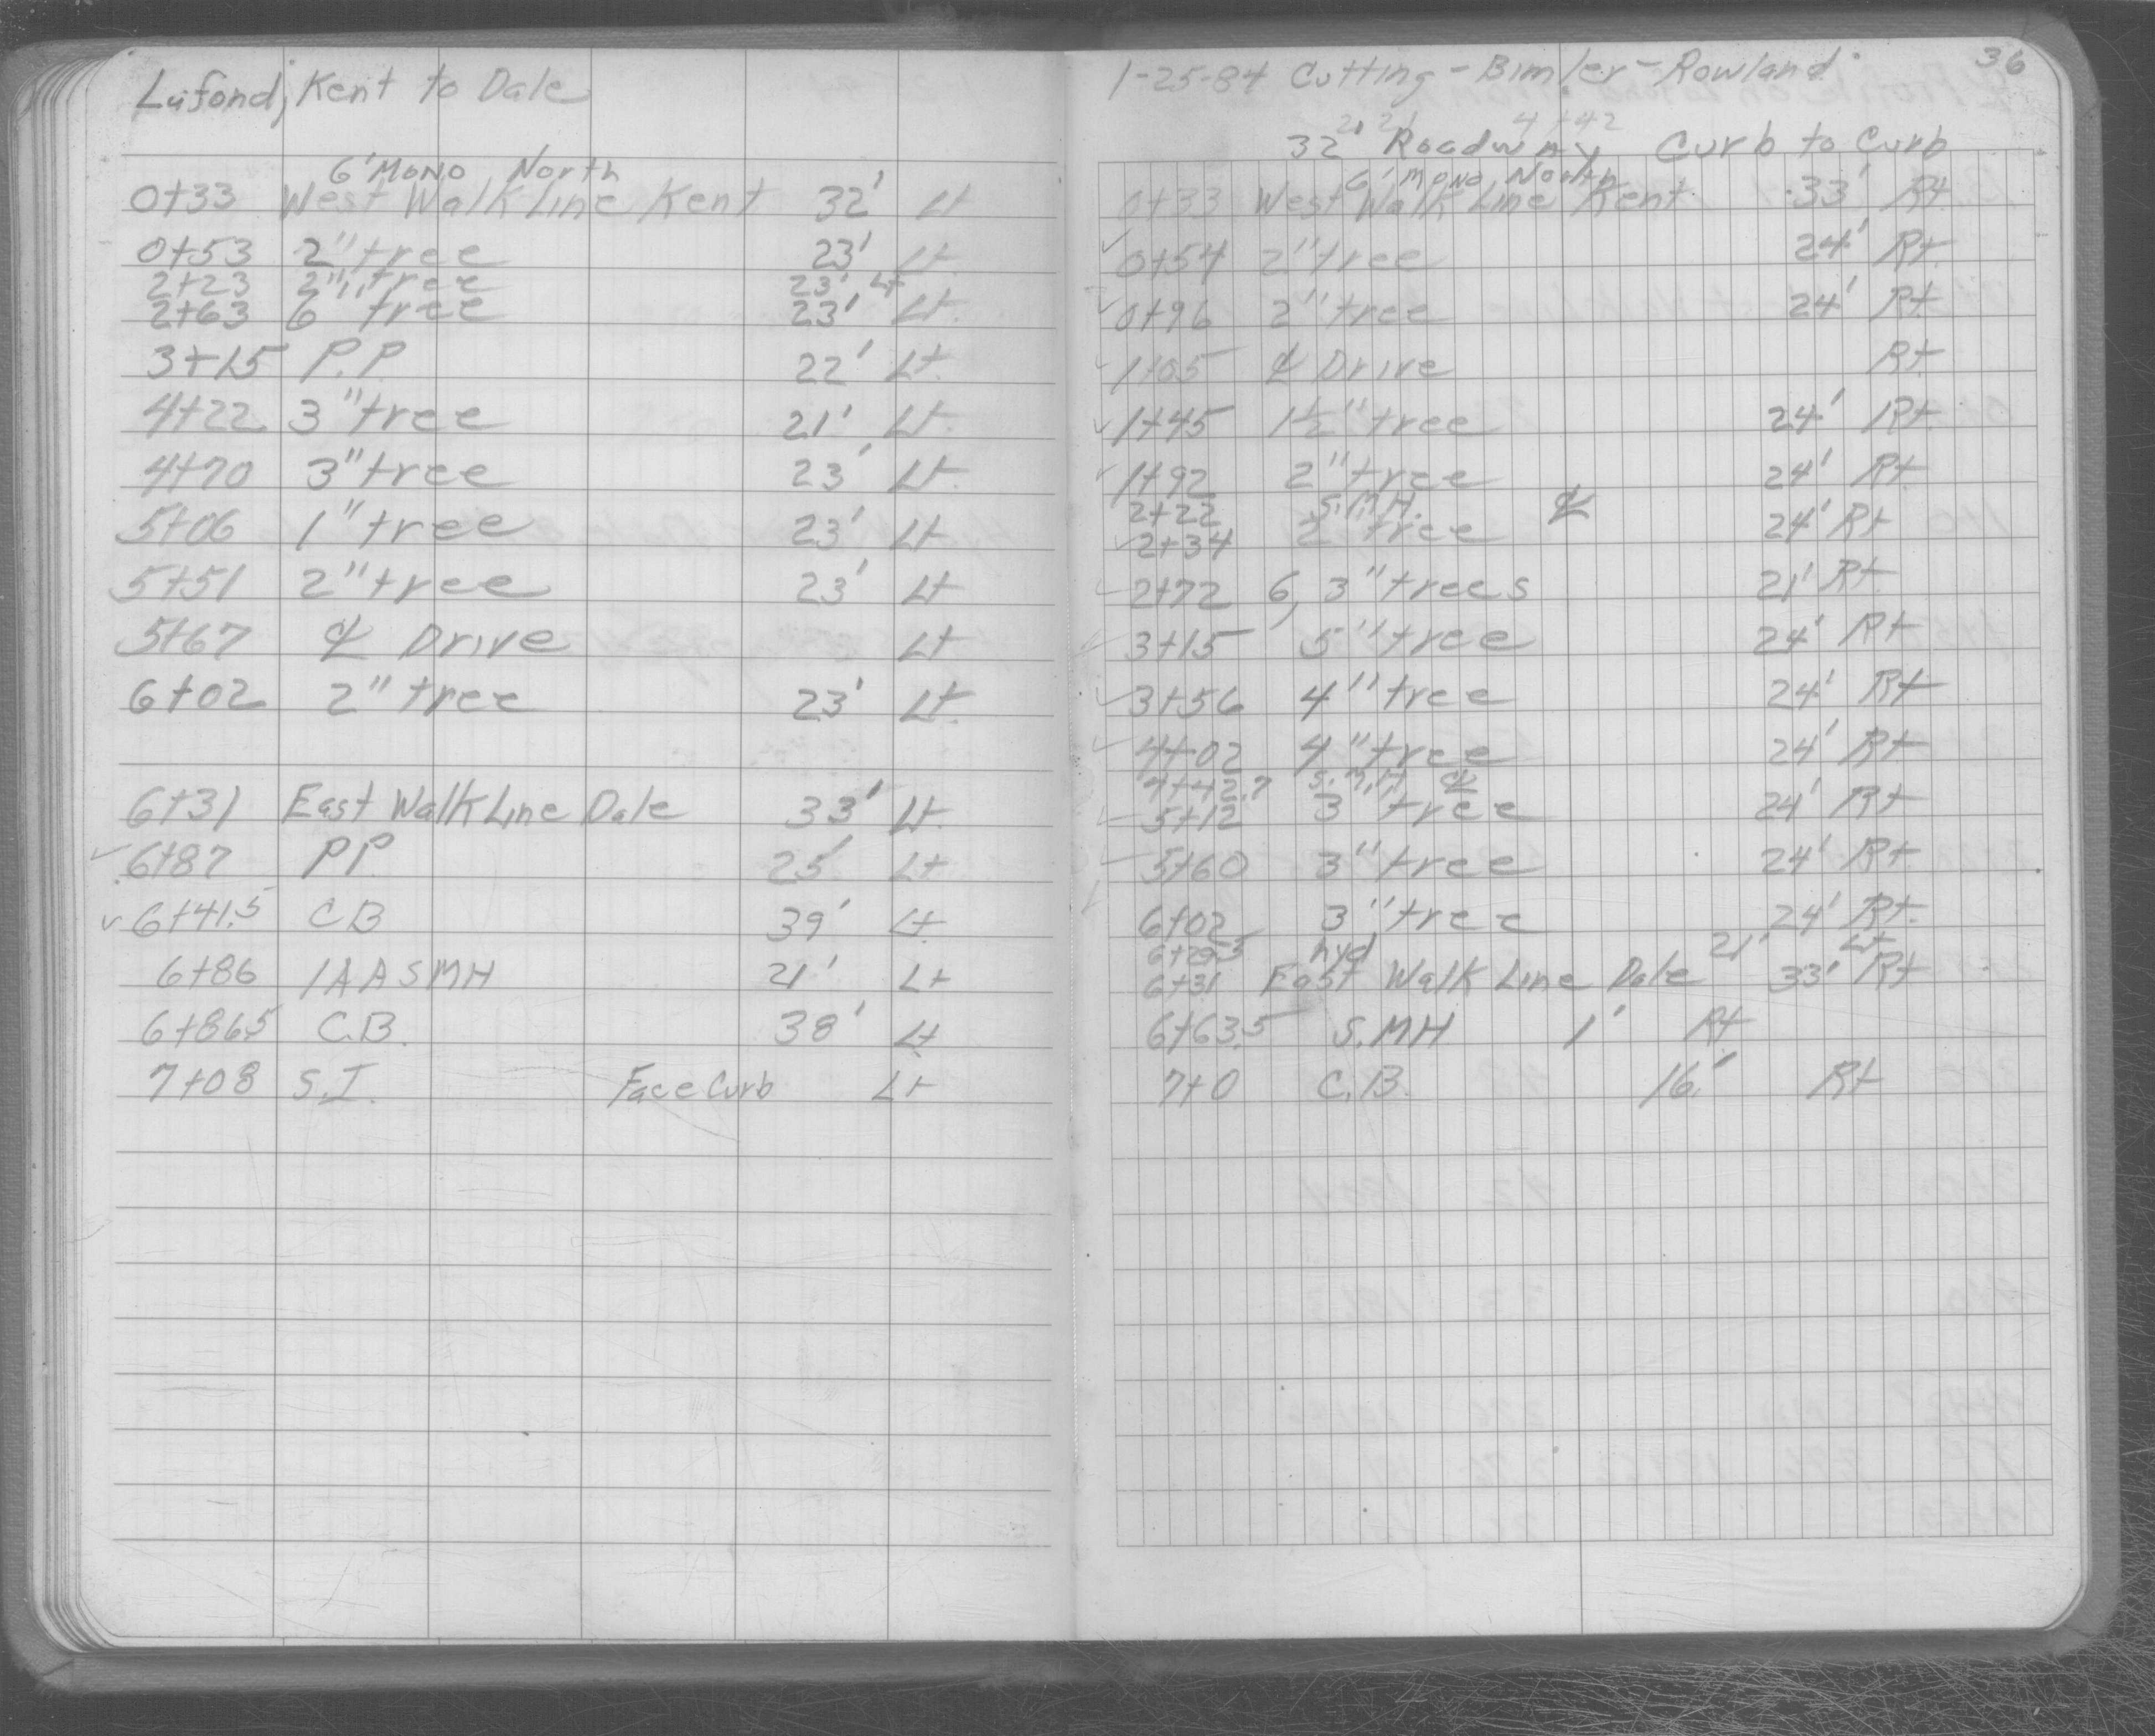 Lafond, Kent to Dale
6' MONO North
0+33 West Walk Line Kent 32' Lt
0+53 2" tree 23' Lt
2+23 2" tree 23' Lt
2+63 6" tree 23' Lt.
3+15 P.P. 22' Lt.
4+22 3" tree 21' Lt.
4+70 3" tree 23' Lt.
5+06 1" tree 23' Lt
5+51 2" tree 23' Lt
5+67 ℄ Drive Lt
6+02 2" tree 23' Lt.
6+31 East Walk Line Dale 33' Lt.
✓ 6+87 PP. 25' Lt
✓ 6+41.5 CB 39' Lt
6+86 1AASMH 21' Lt
6+86.5 C.B. 38' Lt
7+08 S.I. Face Curb Lt
36
1-25-84 Cutting - Bimler - Rowland
32' Roadway Curb to Curb
6' MONO North
0+33 West Walk Line Kent 33' Rt.
✓ 0+54 2" tree 24' Rt.
✓ 0+96 2" tree 24' Rt.
✓ 1+05 ℄ Drive Rt
✓ 1+45 1½" tree 24' Rt.
✓ 1+92 2" tree 24' Rt.
2+22 S.M.H. ℄
✓ 2+34 2" tree 24' Rt
✓ 2+72 6, 3" trees 21' Rt.
✓ 3+15 5" tree 24' Rt
✓ 3+56 4" tree 24' Rt
✓ 4+02 4" tree 24' Rt
S.M.H. ℄
✓ 5+12 3" tree 24' Rt
✓ 5+60 3" tree 24' Rt
✓ 6+02 3" tree 24' Rt.
hyd 21' Lt
6+31 East Walk Line Dale 33' Rt
6+63.5 S.MH 1' Rt
7+0 C.B. 16' Rt